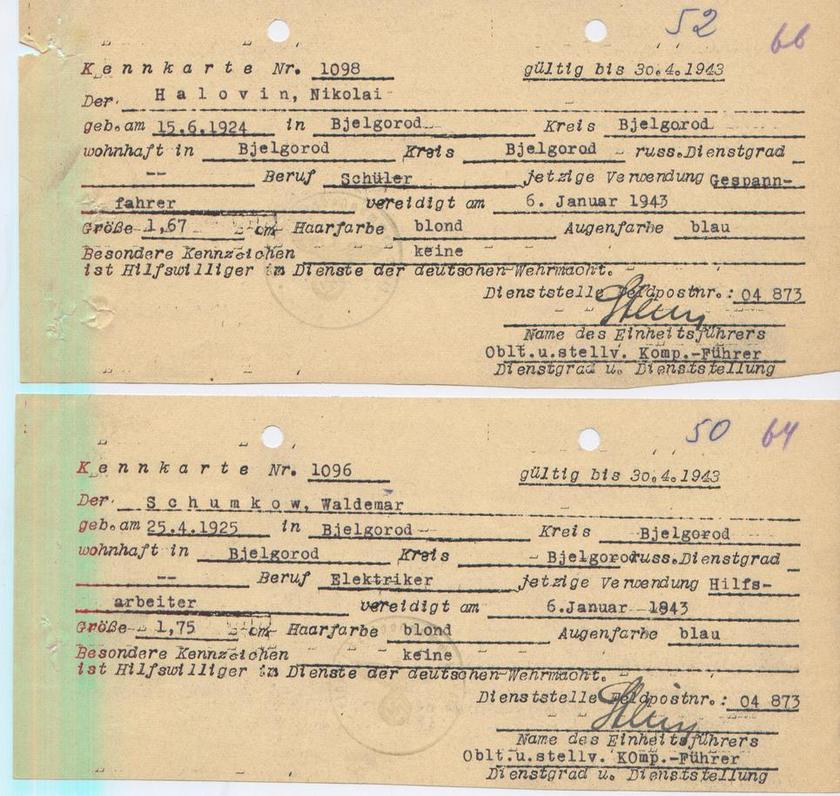 52 66
Kennkarte Nr. 1098 gültig bis 30.4.1943
Der. Halovin, Nikolai
geb.am 15.6.1924 in Bjelgorod Kreis Bjelgorod
wohnhaft in Bjelgorod Kreis Bjelgorod russ.Dienstgrad
-- Beruf Schüler jetzige Verwendung Gespann-
fahrer vereidigt am 6. Januar 1943
Größe 1,67 cm Haarfarbe blond Augenfarbe blau
Besondere Kennzeichen keine
ist Hilfswilliger im Dienste der deutschen Wehrmacht.
Dienststelle Feldpostnr.: 04 873
Name des Einheitsführers
Oblt.u.stellv. Komp.-Führer
Dienstgrad u. Dienststellung
50 64
Kennkarte Nr. 1096 gültig bis 30.4.1943
Der. Schumkow, Waldemar
geb.am 25.4.1925 in Bjelgorod Kreis Bjelgorod
wohnhaft in Bjelgorod Kreis Bjelgorod russ.Dienstgrad
-- Beruf Elektriker jetzige Verwendung Hilfs-
arbeiter vereidigt am 6.Januar 1943
Größe 1,75 cm Haarfarbe blond Augenfarbe blau
Besondere Kennzeichen keine
ist Hilfswilliger im Dienste der deutschen Wehrmacht.
Dienststelle Feldpostnr.: 04 873
Name des Einheitsführers
Oblt.u.stellv. KOmp.-Führer
Dienstgrad u. Dienststellung